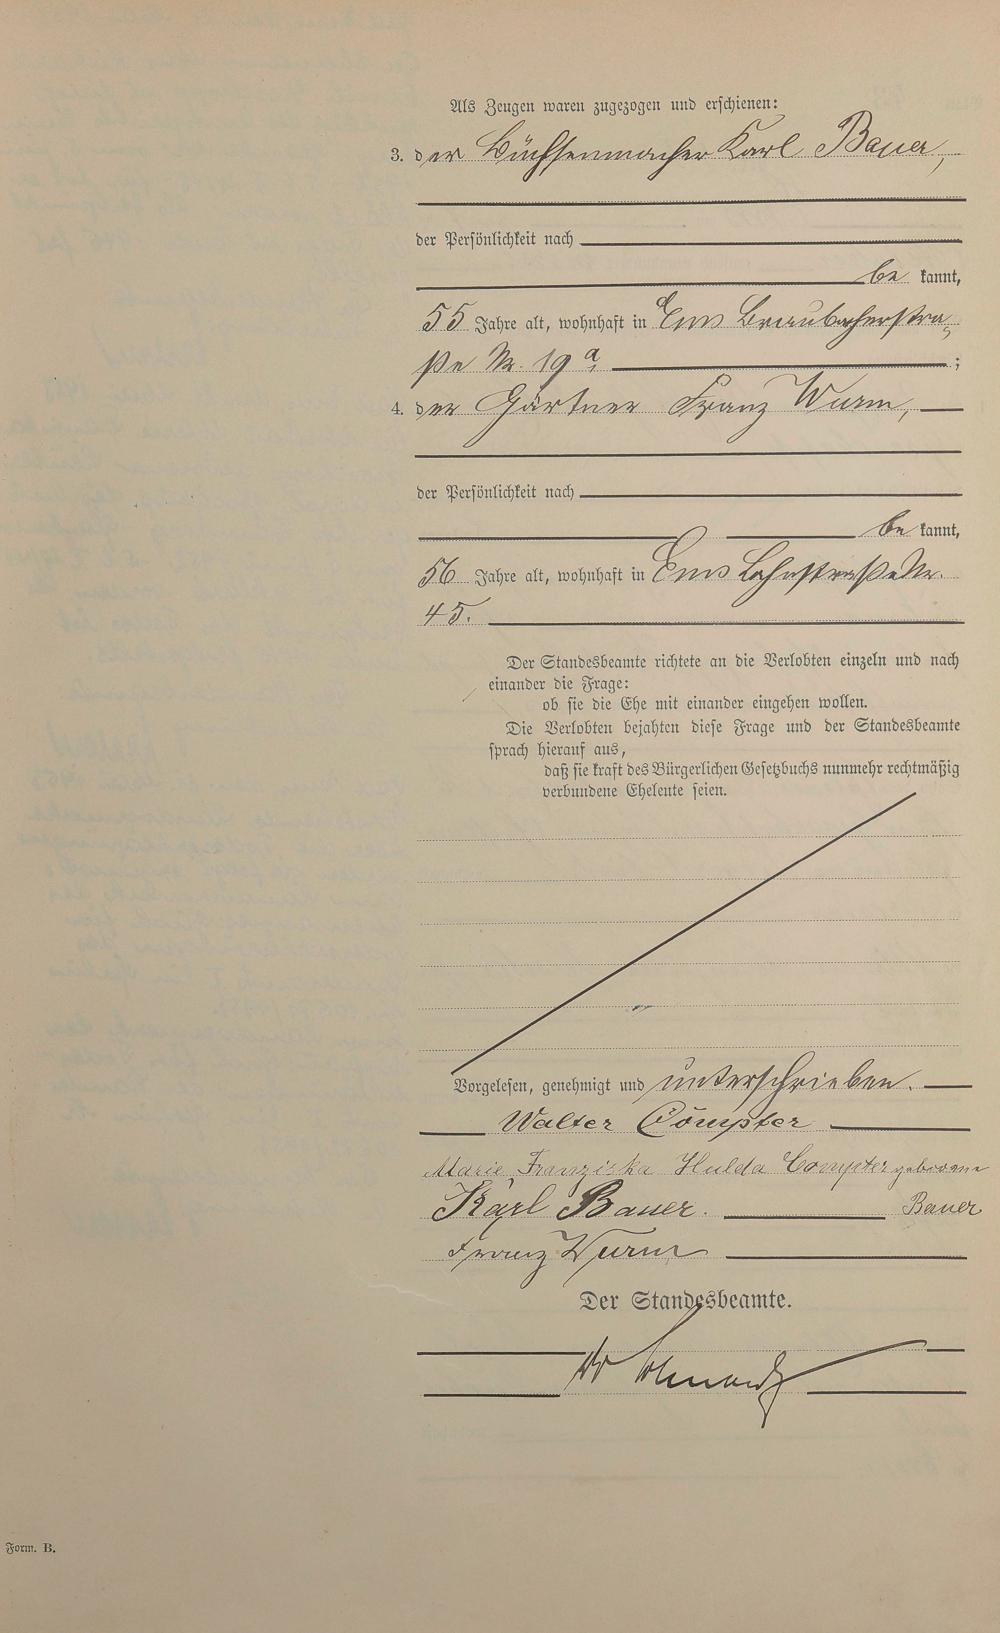 Als Zeugen waren zugezogen und erschienen:
3. der Büchsenmacher Karl Bauer,
der Persönlichkeit nach
be kannt,
55 Jahre alt, wohnhaft in Ems Braubacherstra-
ße Nr. 19 a ;
4. der Gärtner Franz Wurm,
der Persönlichkeit nach
be kannt,
56 Jahre alt, wohnhaft in Ems Lahnstraße Nr.
45.
Der Standesbeamte richtete an die Verlobten einzeln und nach
einander die Frage:
ob sie die Ehe mit einander eingehen wollen.
Die Verlobten bejahten diese Frage und der Standesbeamte
sprach hierauf aus,
daß sie kraft des Bürgerlichen Gesetzbuchs nunmehr rechtmäßig
verbundene Eheleute seien.
Vorgelesen, genehmigt und unterschrieben.
Walter Compter
Marie Franziska Hulda Compter geborene
Karl Bauer. Bauer
Franz Wurm
Der Standesbeamte.
Form. B.